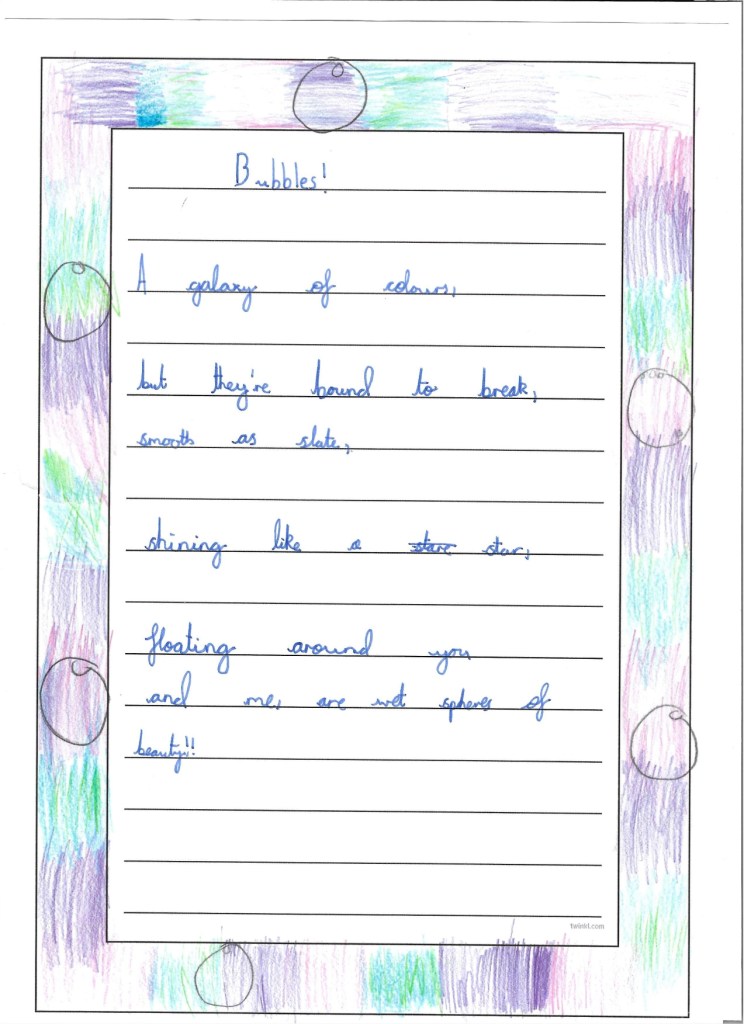 Bubbles!
A galaxy of colours,
but they're bound to break,
smooth as slate,
shining like a stare star,
floating around you
and me, are wet spheres of
beauty!!
twinkl.com